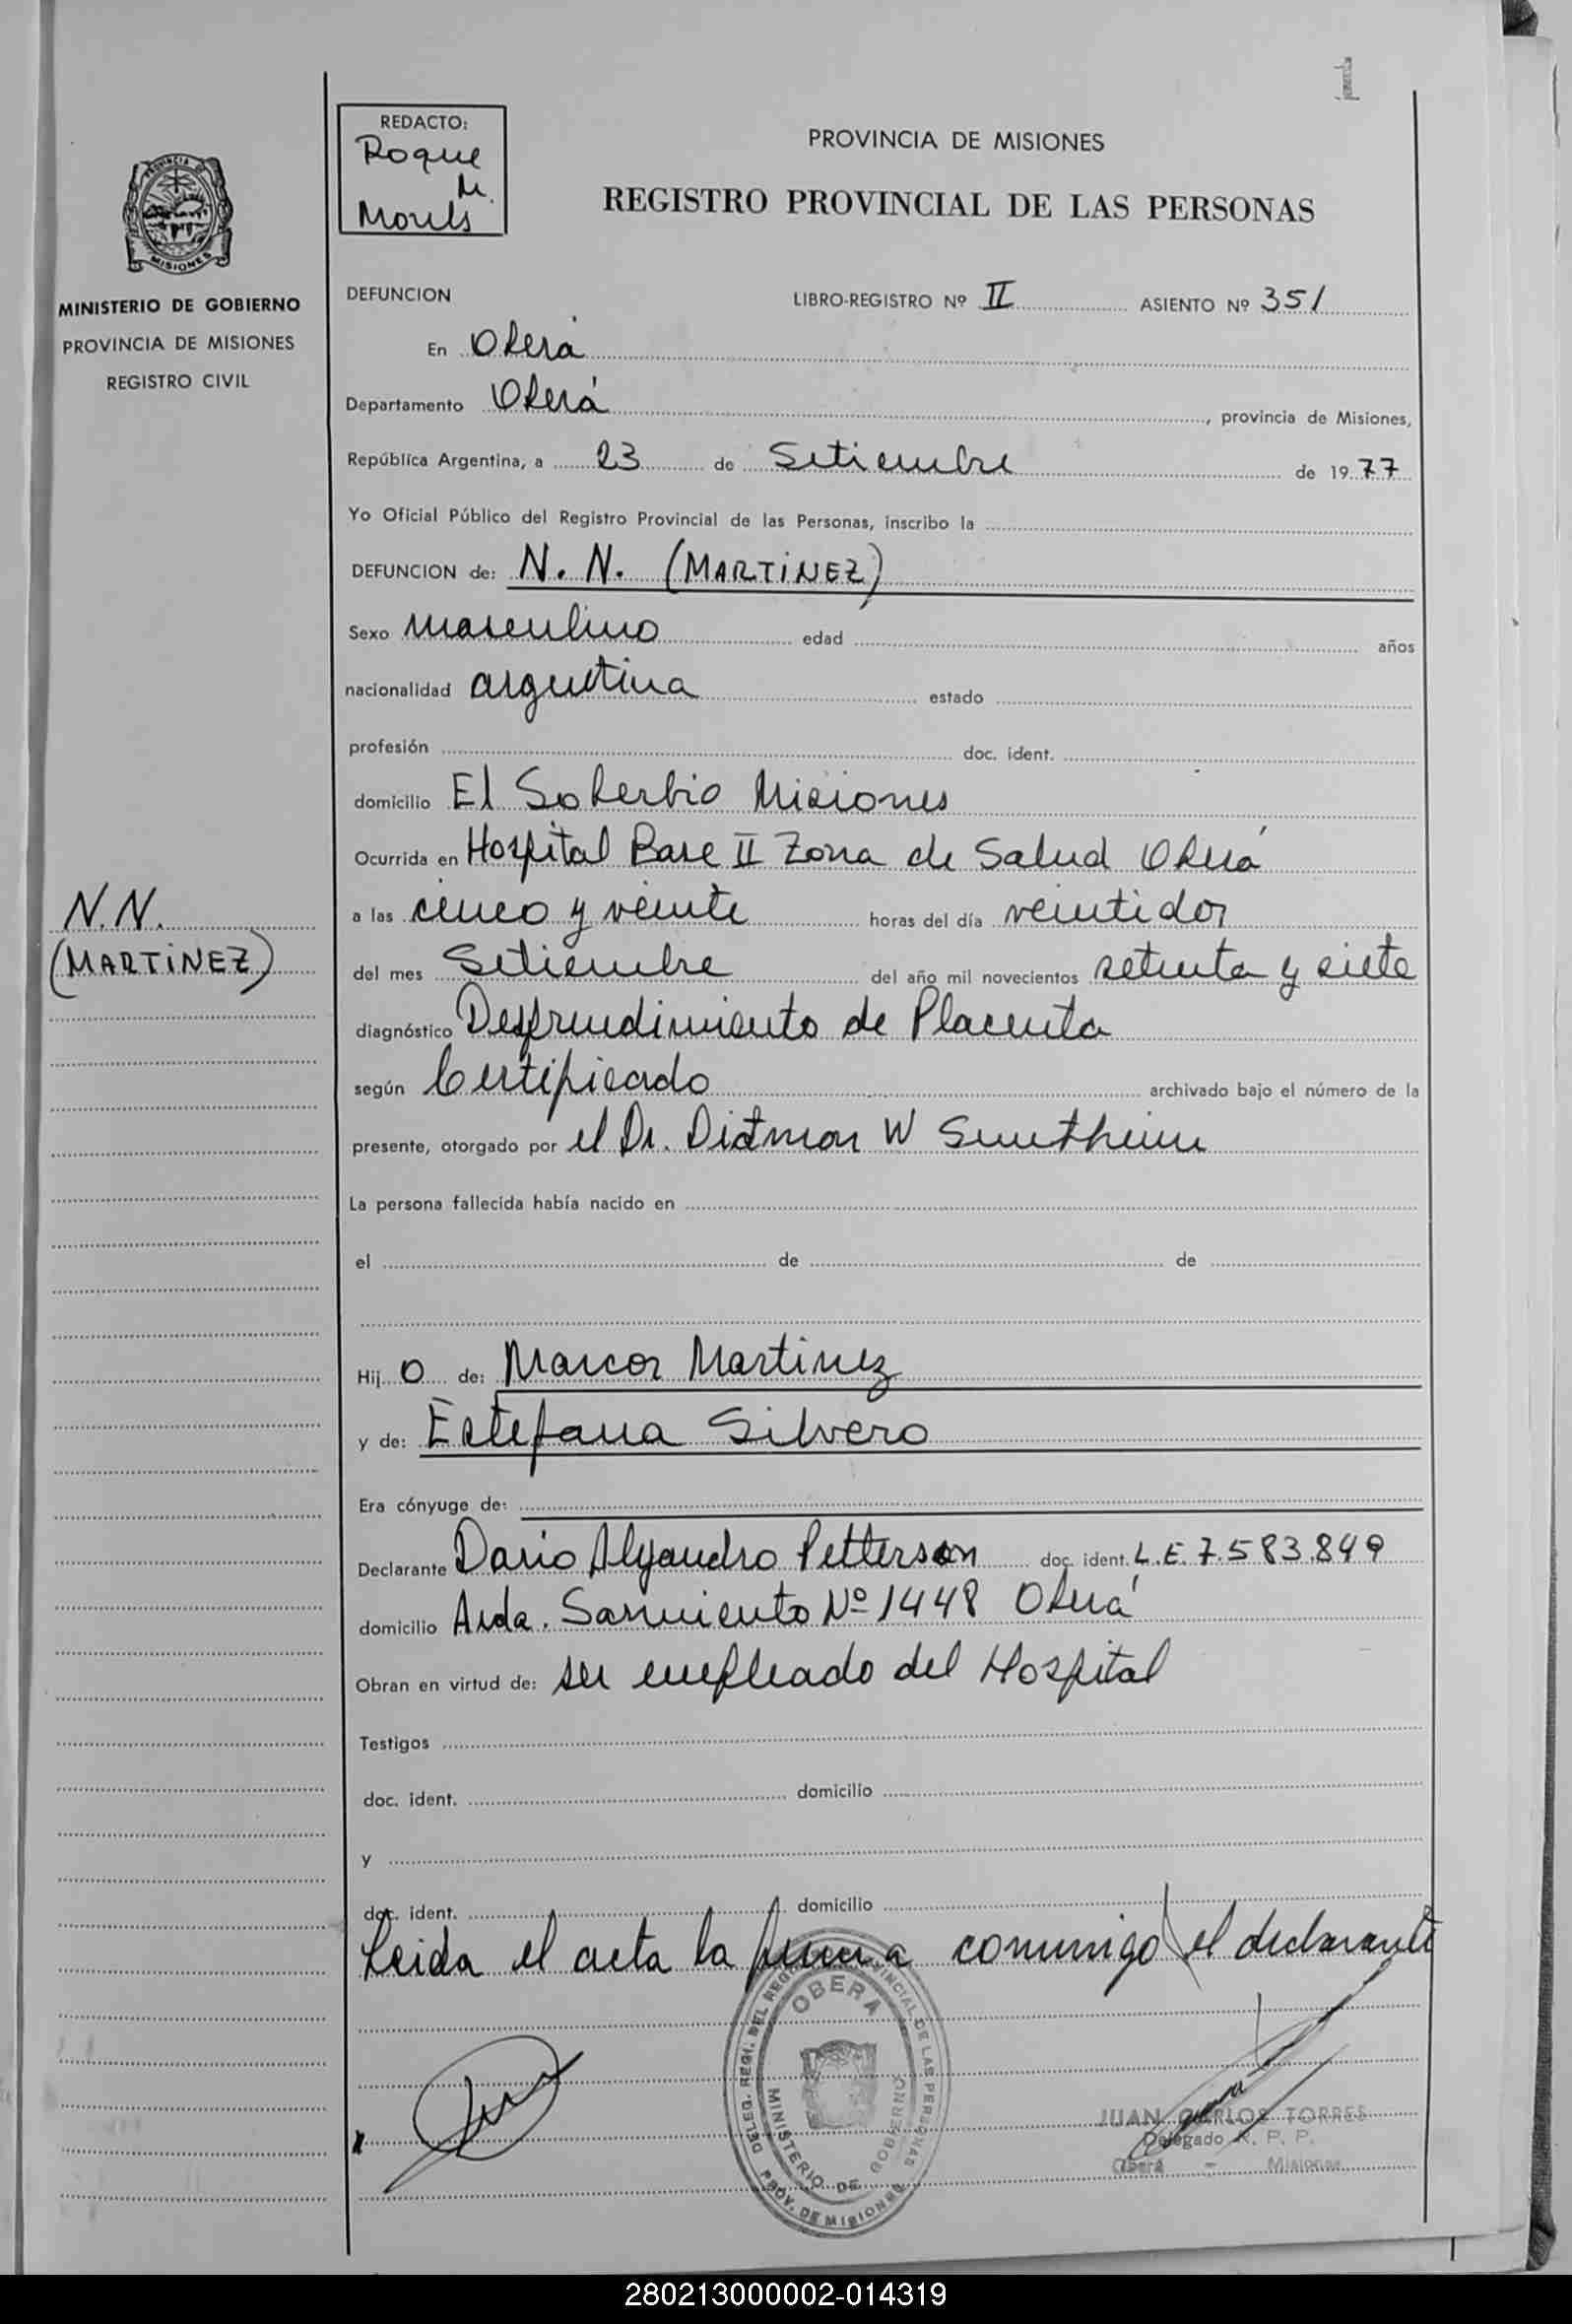 1
REDACTO:
Roque
M.
PROVINCIA DE MISIONES
REGISTRO PROVINCIAL DE LAS PERSONAS
PROVINCIA DE
MISIONES
MINISTERIO DE GOBIERNO
PROVINCIA DE MISIONES
REGISTRO CIVIL
DEFUNCION LIBRO-REGISTRO Nº II ASIENTO Nº 351
En Oberá
Departamento Oberá, provincia de Misiones,
República Argentina, a 23 de Setiembre de 1977
Yo Oficial Público del Registro Provincial de las Personas, inscribo la
DEFUNCION de: N. N. (MARTINEZ)
Sexo masculino edad años
nacionalidad argentina estado
profesión doc. ident.
domicilio El Soberbio Misiones
Ocurrida en Hospital Base II Zona de Salud Oberá
N.N.
(MARTINEZ)
a las cinco y veinte horas del día veintidos
del mes Setiembre del año mil novecientos setenta y siete
diagnóstico Desprendimiento de Placenta
según Certificado archivado bajo el número de la
presente, otorgado por el Dr. W
La persona fallecida había nacido en
el de de
Hijo de: Marcos Martinez
y de: Estefana Silvero
Era cónyuge de:
Declarante Dario Alejandro Petterson doc. ident. L.E. 7.583.849
domicilio Avda. Sarmiento Nº 1448 Oberá
Obran en virtud de: ser empleado del Hospital
Testigos
doc. ident. domicilio
y
doc. ident. domicilio
Leida el acta la firma conmigo el declarante
DELEG. REGI. DEL REGISTRO PROVINCIAL DE LAS PERSONAS
OBERA
MINISTERIO DE GOBIERNO
PROV. DE MISIONES
JUAN CARLOS TORRES
Delegado R. P. P.
Oberá - Misiones
280213000002-014319